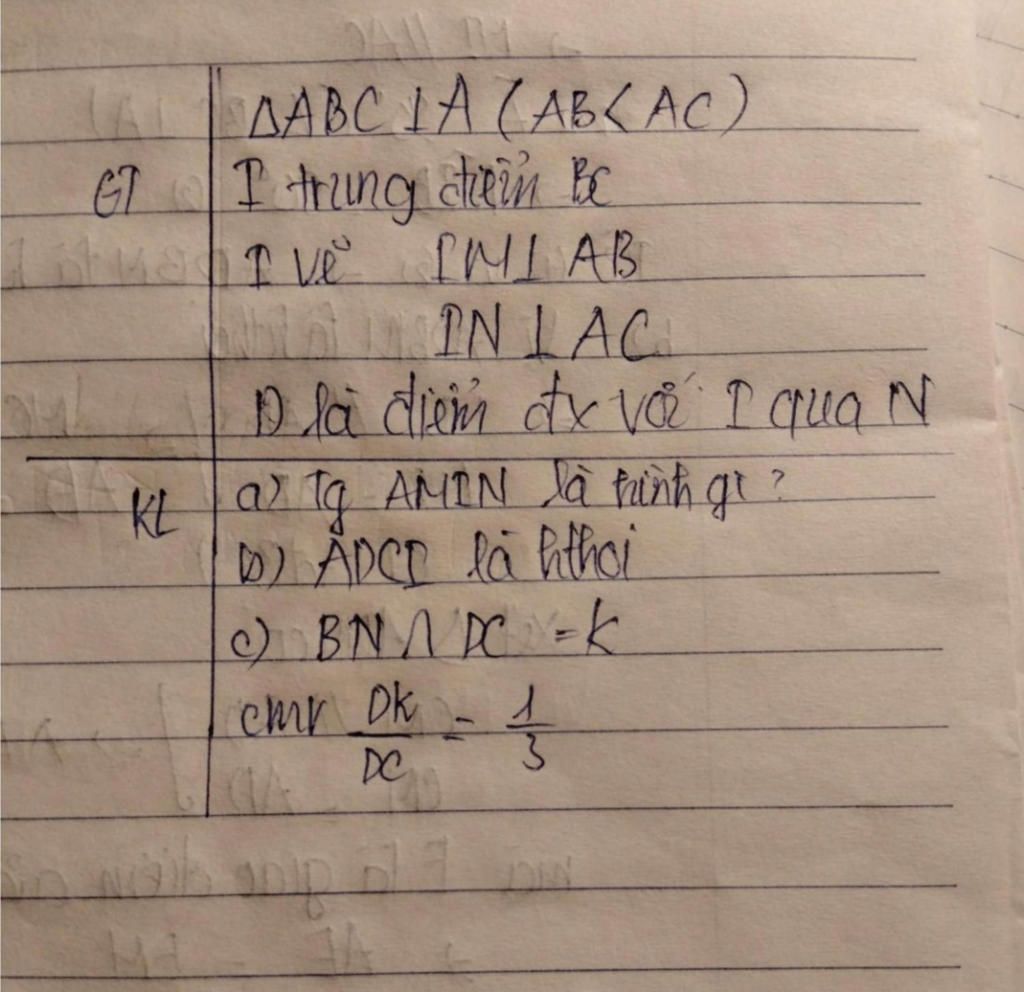 ΔABC ⊥ A (AB < AC)
GT I trung điểm BC
I vẽ IM ⊥ AB
IN ⊥ AC
D là điểm đx với I qua N
KL a) Tg AMIN là hình gì?
b) ADCI là hthoi
c) BN ∩ DC = K
cmr DK/DC = 1/3